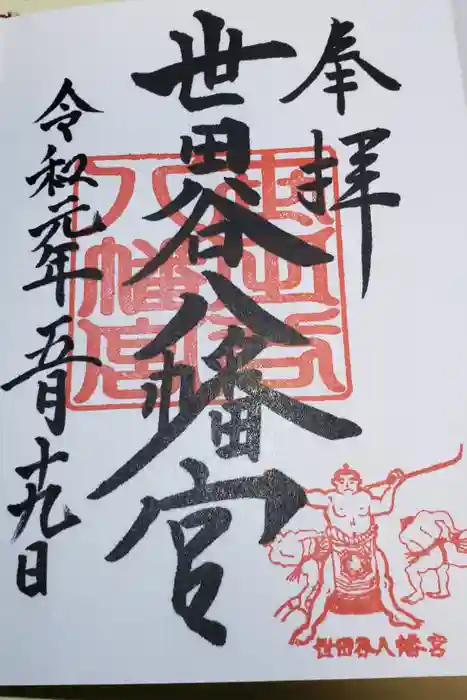 奉拝
世田谷八幡宮
令和元年五月十九日
世田谷
八幡宮
世田谷八幡宮